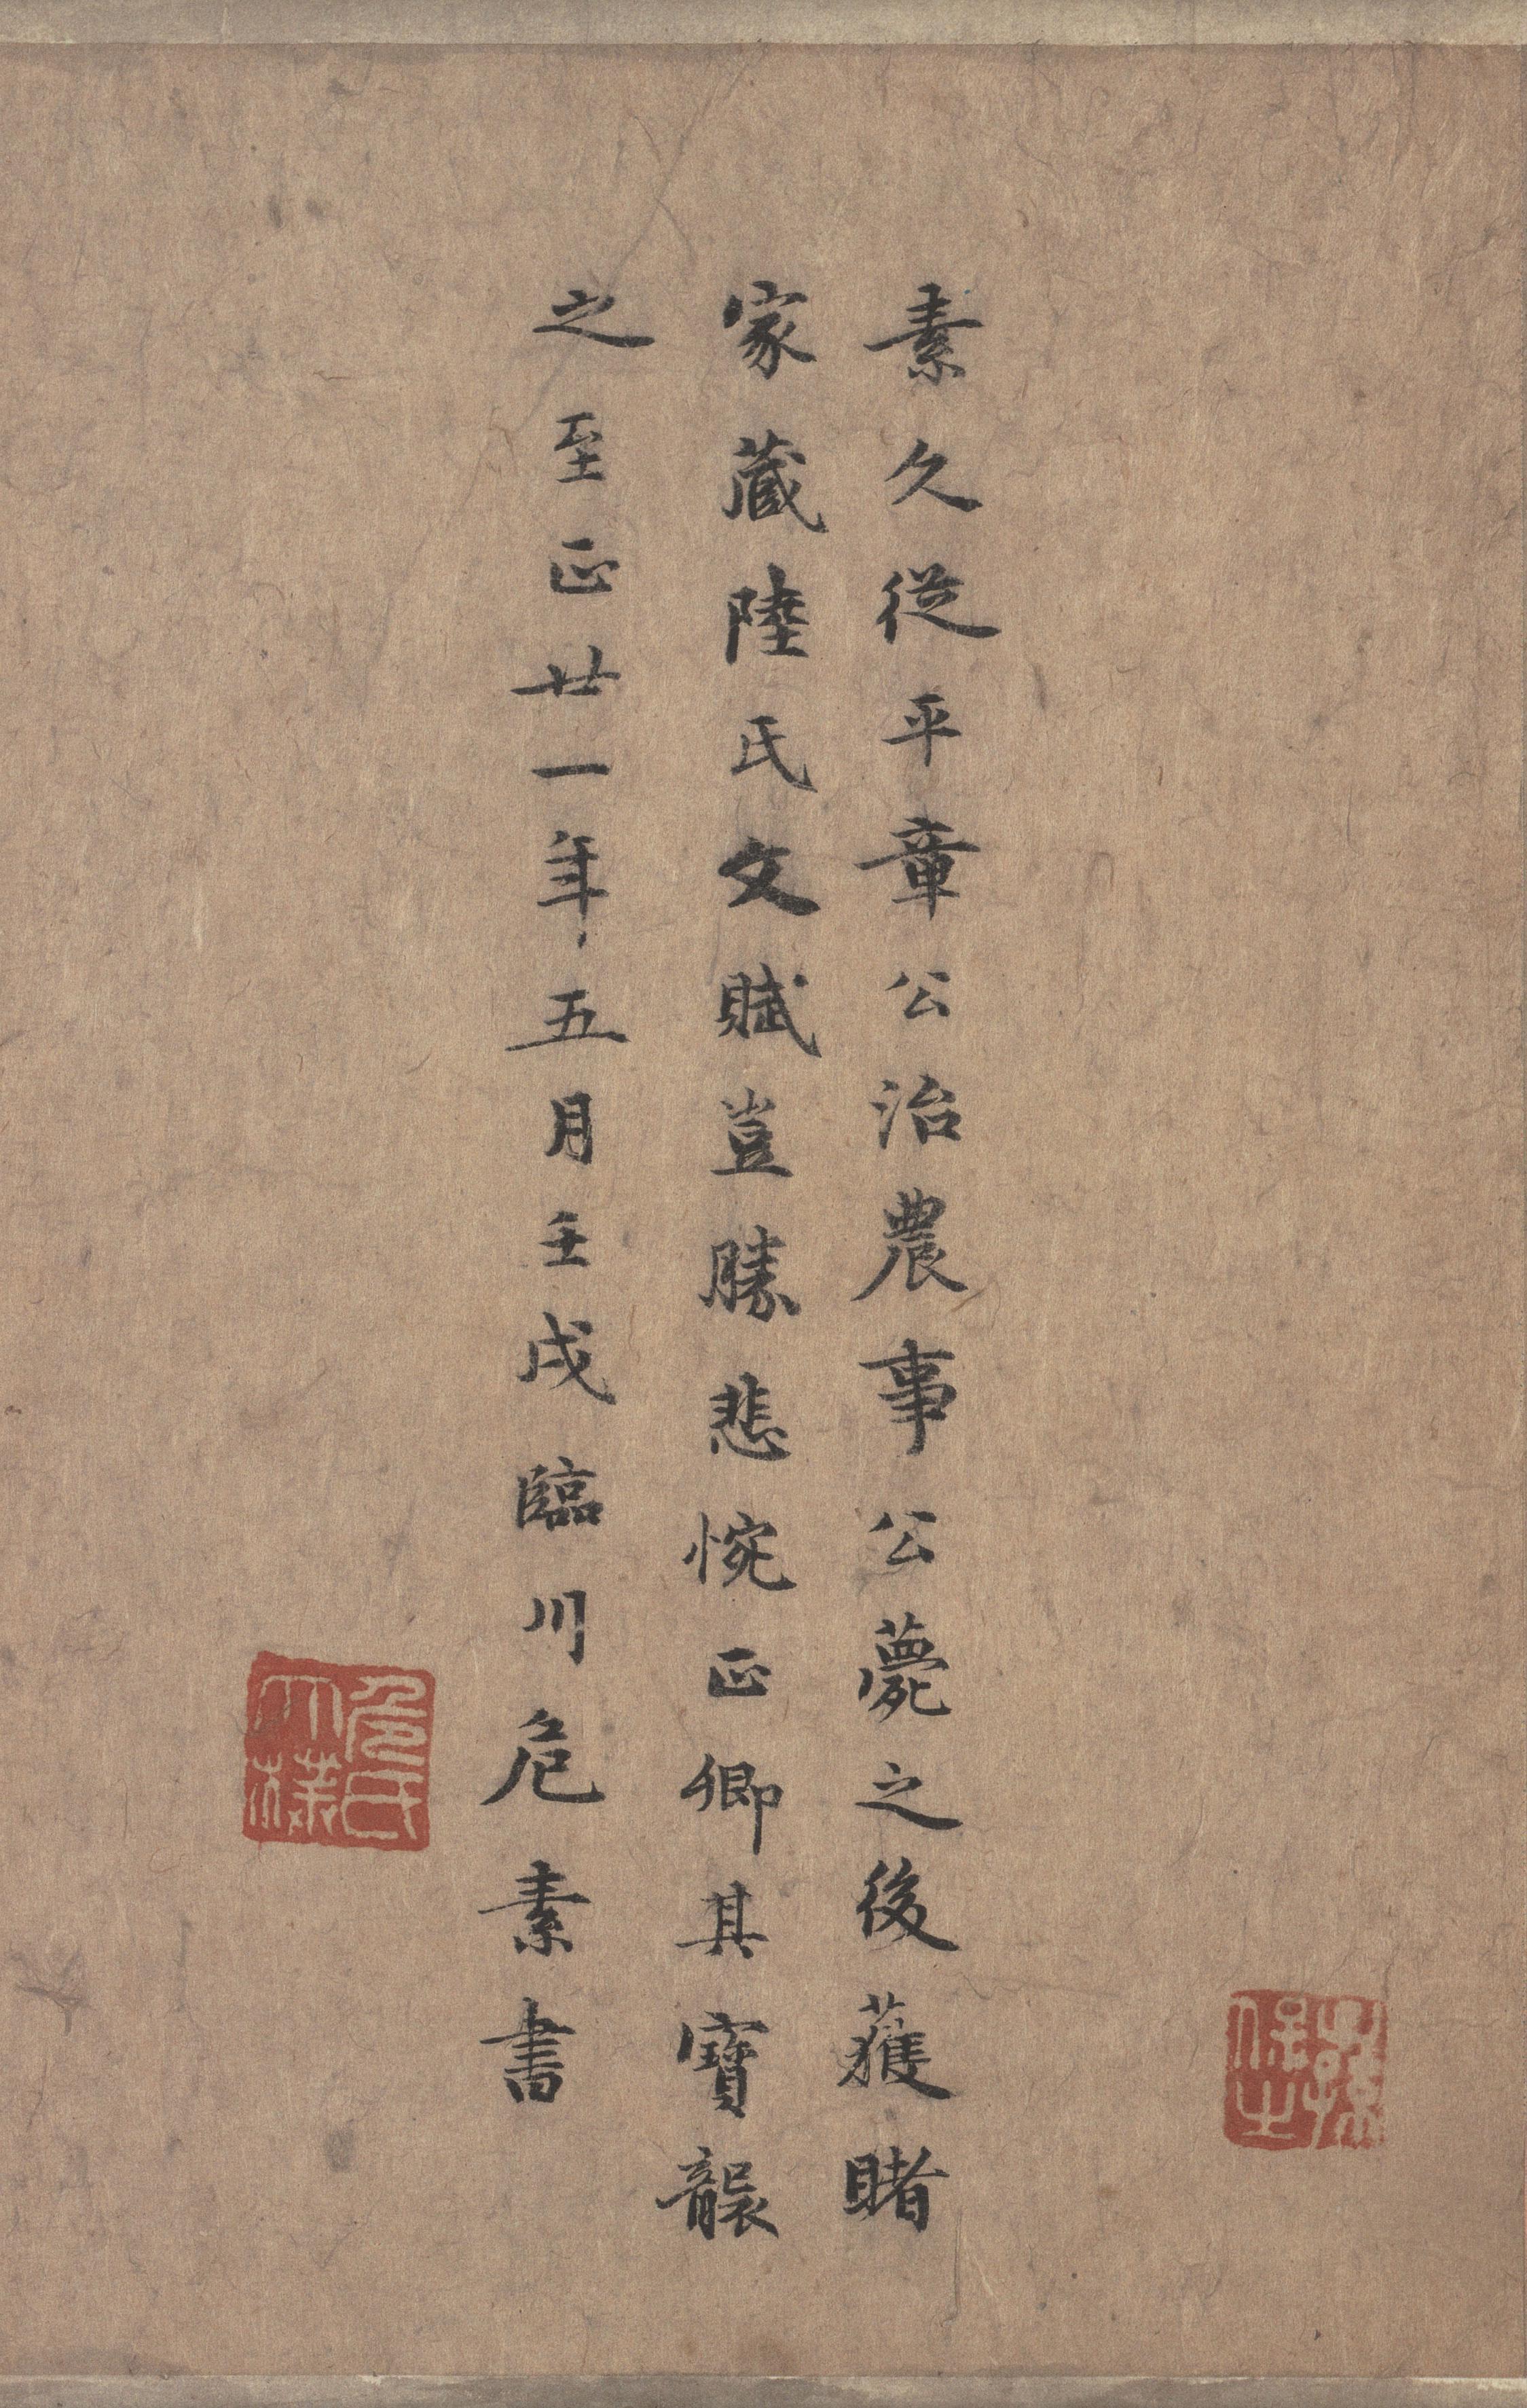 素久從平章公治農事公薨之後獲睹
家藏陸氏文賦豈勝悲惋正卿其寶襲
之至正廿一年五月壬戌臨川危素書
危氏大樸